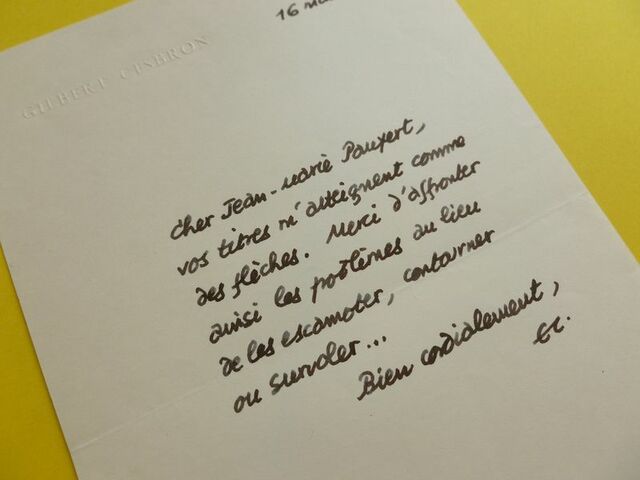 16 ma
GILBERT CESBRON
Cher Jean-Marie Paupert,
vos titres m'atteignent comme
des flèches. Merci d'affronter
ainsi les problèmes au lieu
de les escamoter, contourner
ou survoler...
Bien cordialement,
GC.